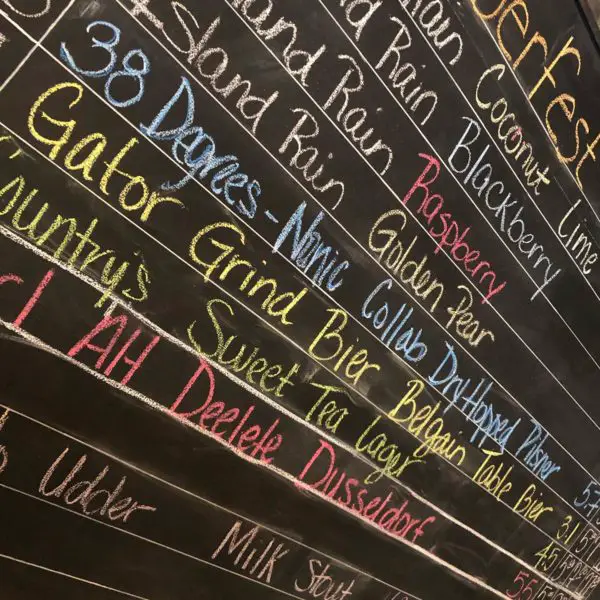 erfest
Coconut Lime
Rain Blackberry
Rain Raspberry
Island Rain Golden Pear
38 Degrees - Nonic Collab Dry Hopped Pilsner 5.7
Gator Grind Bier Belgain Table Bier 3.1
Country's Sweet Tea Lager 4.5
AH Deelete Dusseldorf 5.5
Udder Milk Stout